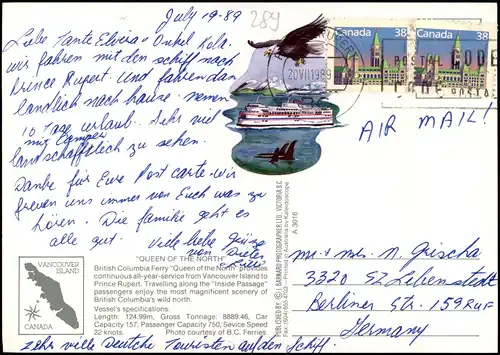 July 19-89
289
Liebe Tante Elvira u Onkel Kola.
wir fahren mit den schiff nach
Prince Rupert. Und fahren dan
landlich nach hause. nemen
10 Tage urlaub. Sehr viel
mit Camper
landschafftlich zu sehen.
Danke für Ewe Post carte wir
freuen uns immer von Euch was zu
hören. Die familie geht es
alle gut. Viele liebe Grüsse
von Dieter
"QUEEN OF THE NORTH"
British Columbia Ferry "Queen of the North" provides
continuous all-year-service from Vancouver Island to
Prince Rupert. Travelling along the "Inside Passage"
passengers enjoy the most magnificent scenery of
British Columbia's wild north.
Vessel's specifications:
Length: 124.99m, Gross Tonnage: 8889.46, Car
Capacity 157, Passenger Capacity 750, Service Speed
22 knots. Photo courtesy of B.C. Ferries
zehr viele Deutche Touristen auf den Schiff.
VANCOUVER
ISLAND
CANADA
PUBLISHED BY J. BARNARD PHOTOGRAPHER LTD., VICTORIA B.C.
Printed in Australia by Kaleidoscope
A 3016
Canada 38
Canada 38
20 VII 1989
POSTAL CODE
AIR MAIL!
mr + mrs. N. Grischa
3320 SZ. Lebenstedt
Berliner Str. 159
Germany